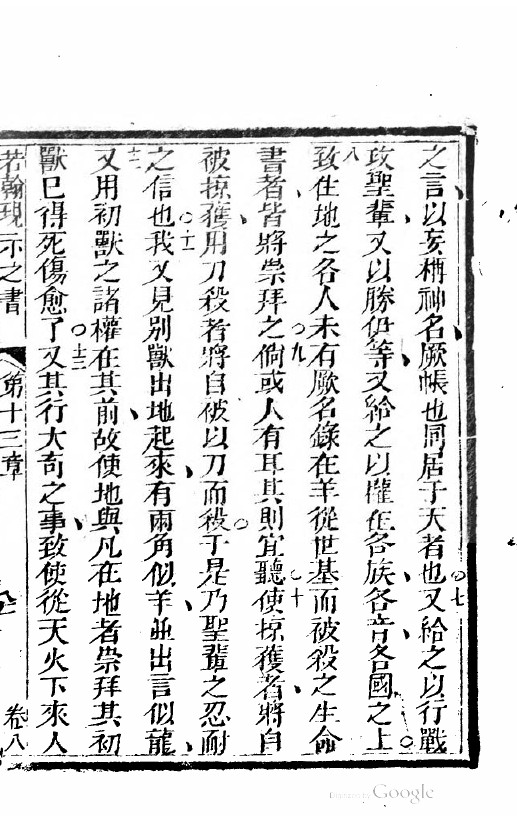 之言以妄稱神名厥帳也同居于天者也○七又給之以行戰
攻聖輩又以勝伊等又給之以權在各族各音各國之上○
八致住地之各人未有厥名錄在羊從世基而被殺之生命
書者皆將崇拜之○九倘或人有耳其則宜聽○十使掠獲者將自
被掠獲用刀殺者將自被以刀而殺○于是乃聖輩之忍耐
之信也○十一我又見別獸出地起來有兩角似羊並出言似龍
十二又用初獸之諸權在其前故使地與凡在地者崇拜其初
獸已得死傷愈了○十三又其行大奇之事致使從天火下來人
若翰現示之書 第十三章 卷八
Digitized by Google